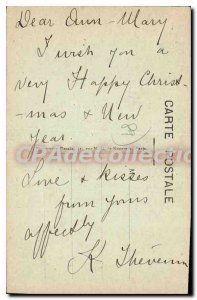 Dear Ann - Mary
I wish you a
very Happy Christ-
mas & New
Year.
Love & kisses
from yours
affectly
K Thévenin
CARTE POSTALE
CPACollection®